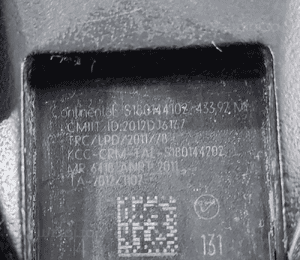 Continental S180144102
CMIIT ID:2012DJ6167
TRC/LPD/2011/78
KCC-CRM-TAL-S180144202
MR 6418 ANRT 2011
TA-2012/1102
131